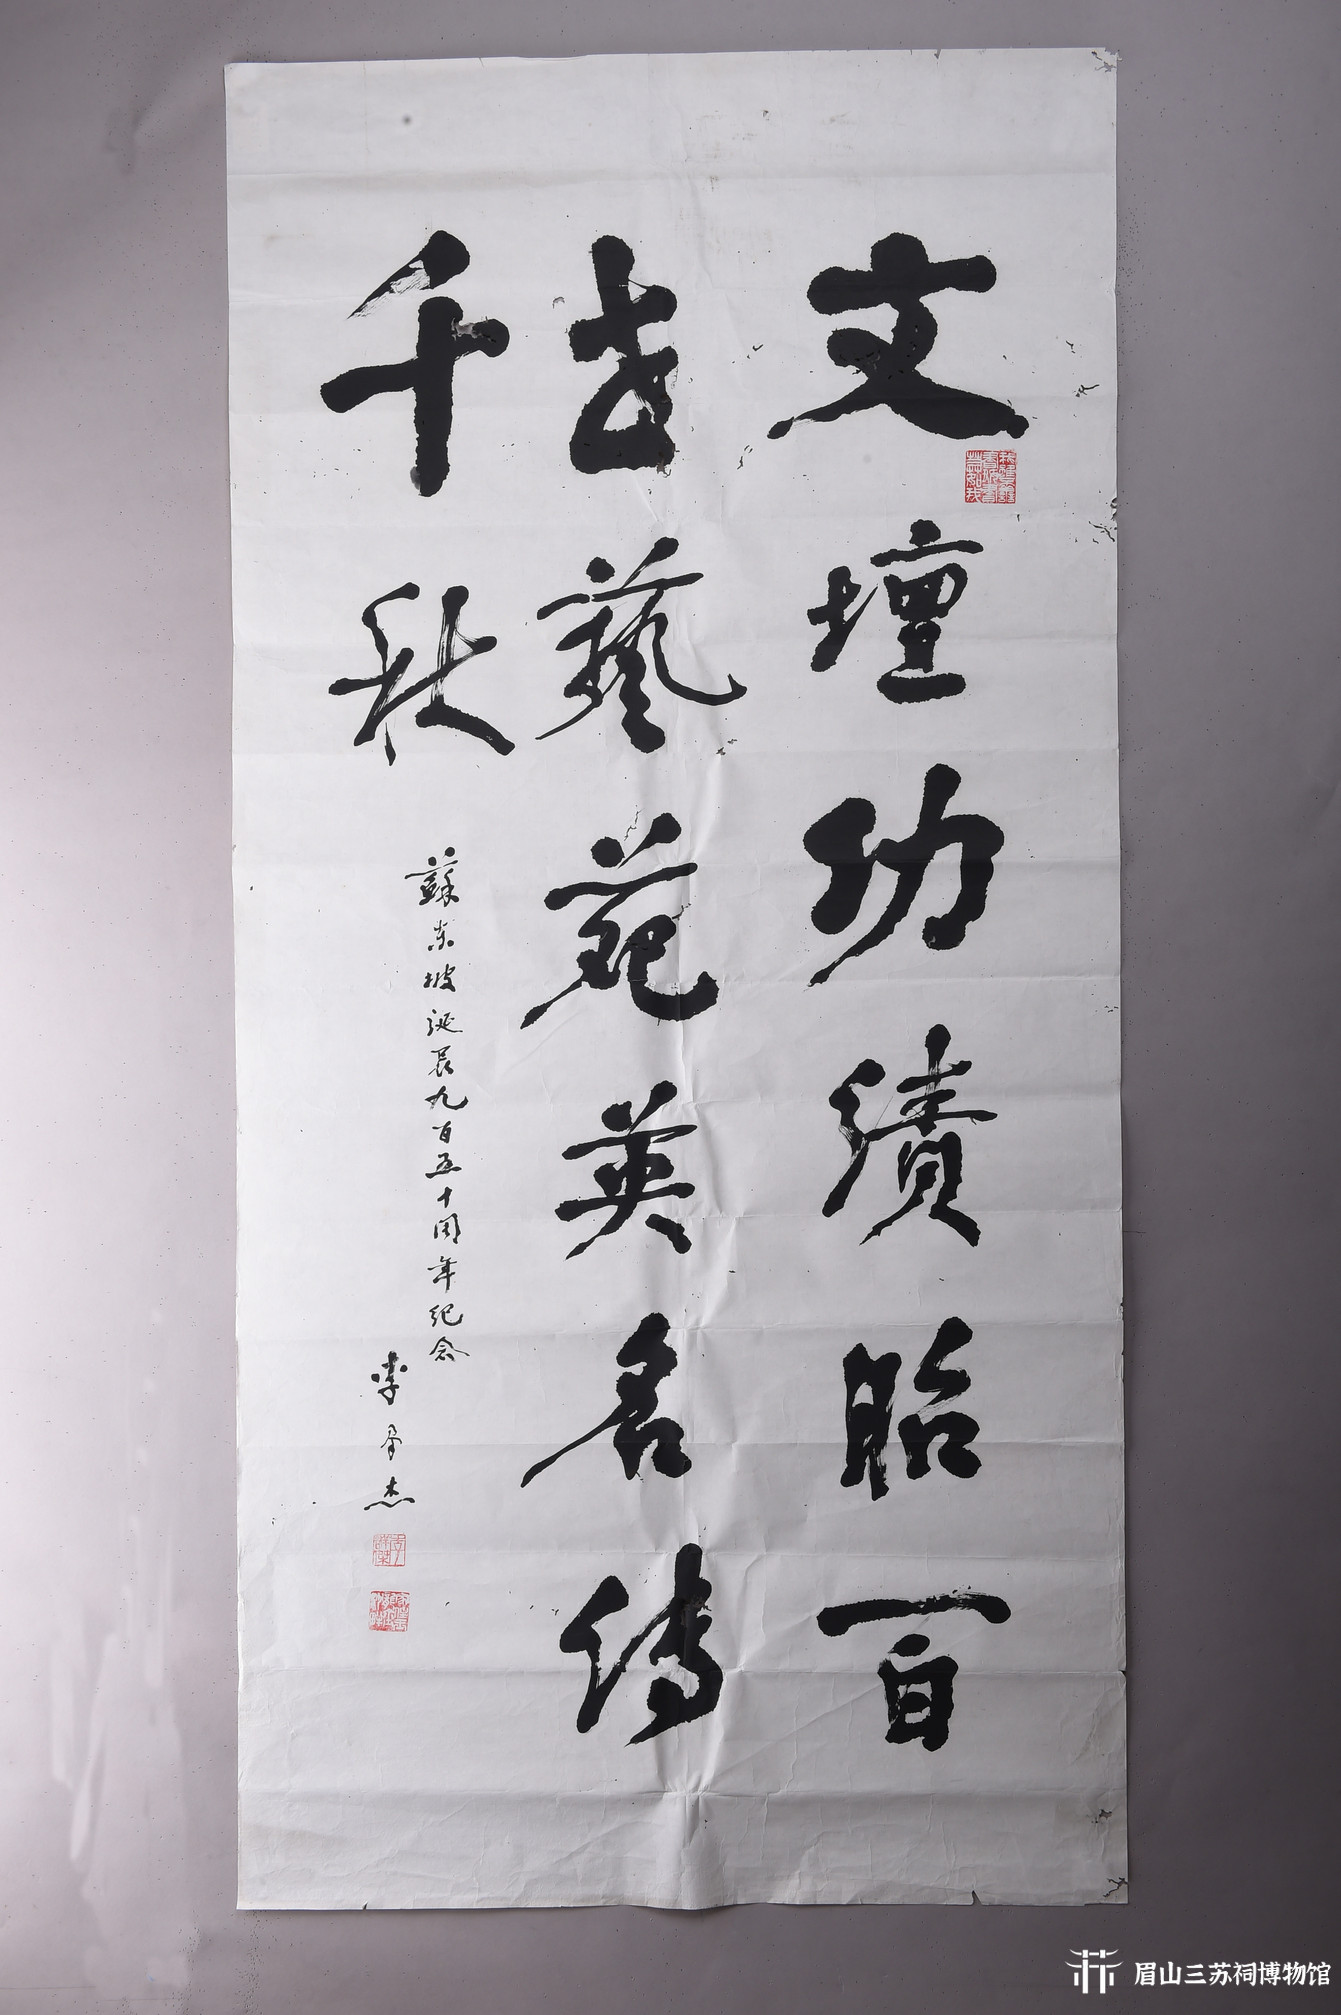 文壇功績昭百
世藝苑英名傳
千秋
蘇東坡誕辰九百五十周年紀念
李羣杰
眉山三苏祠博物馆